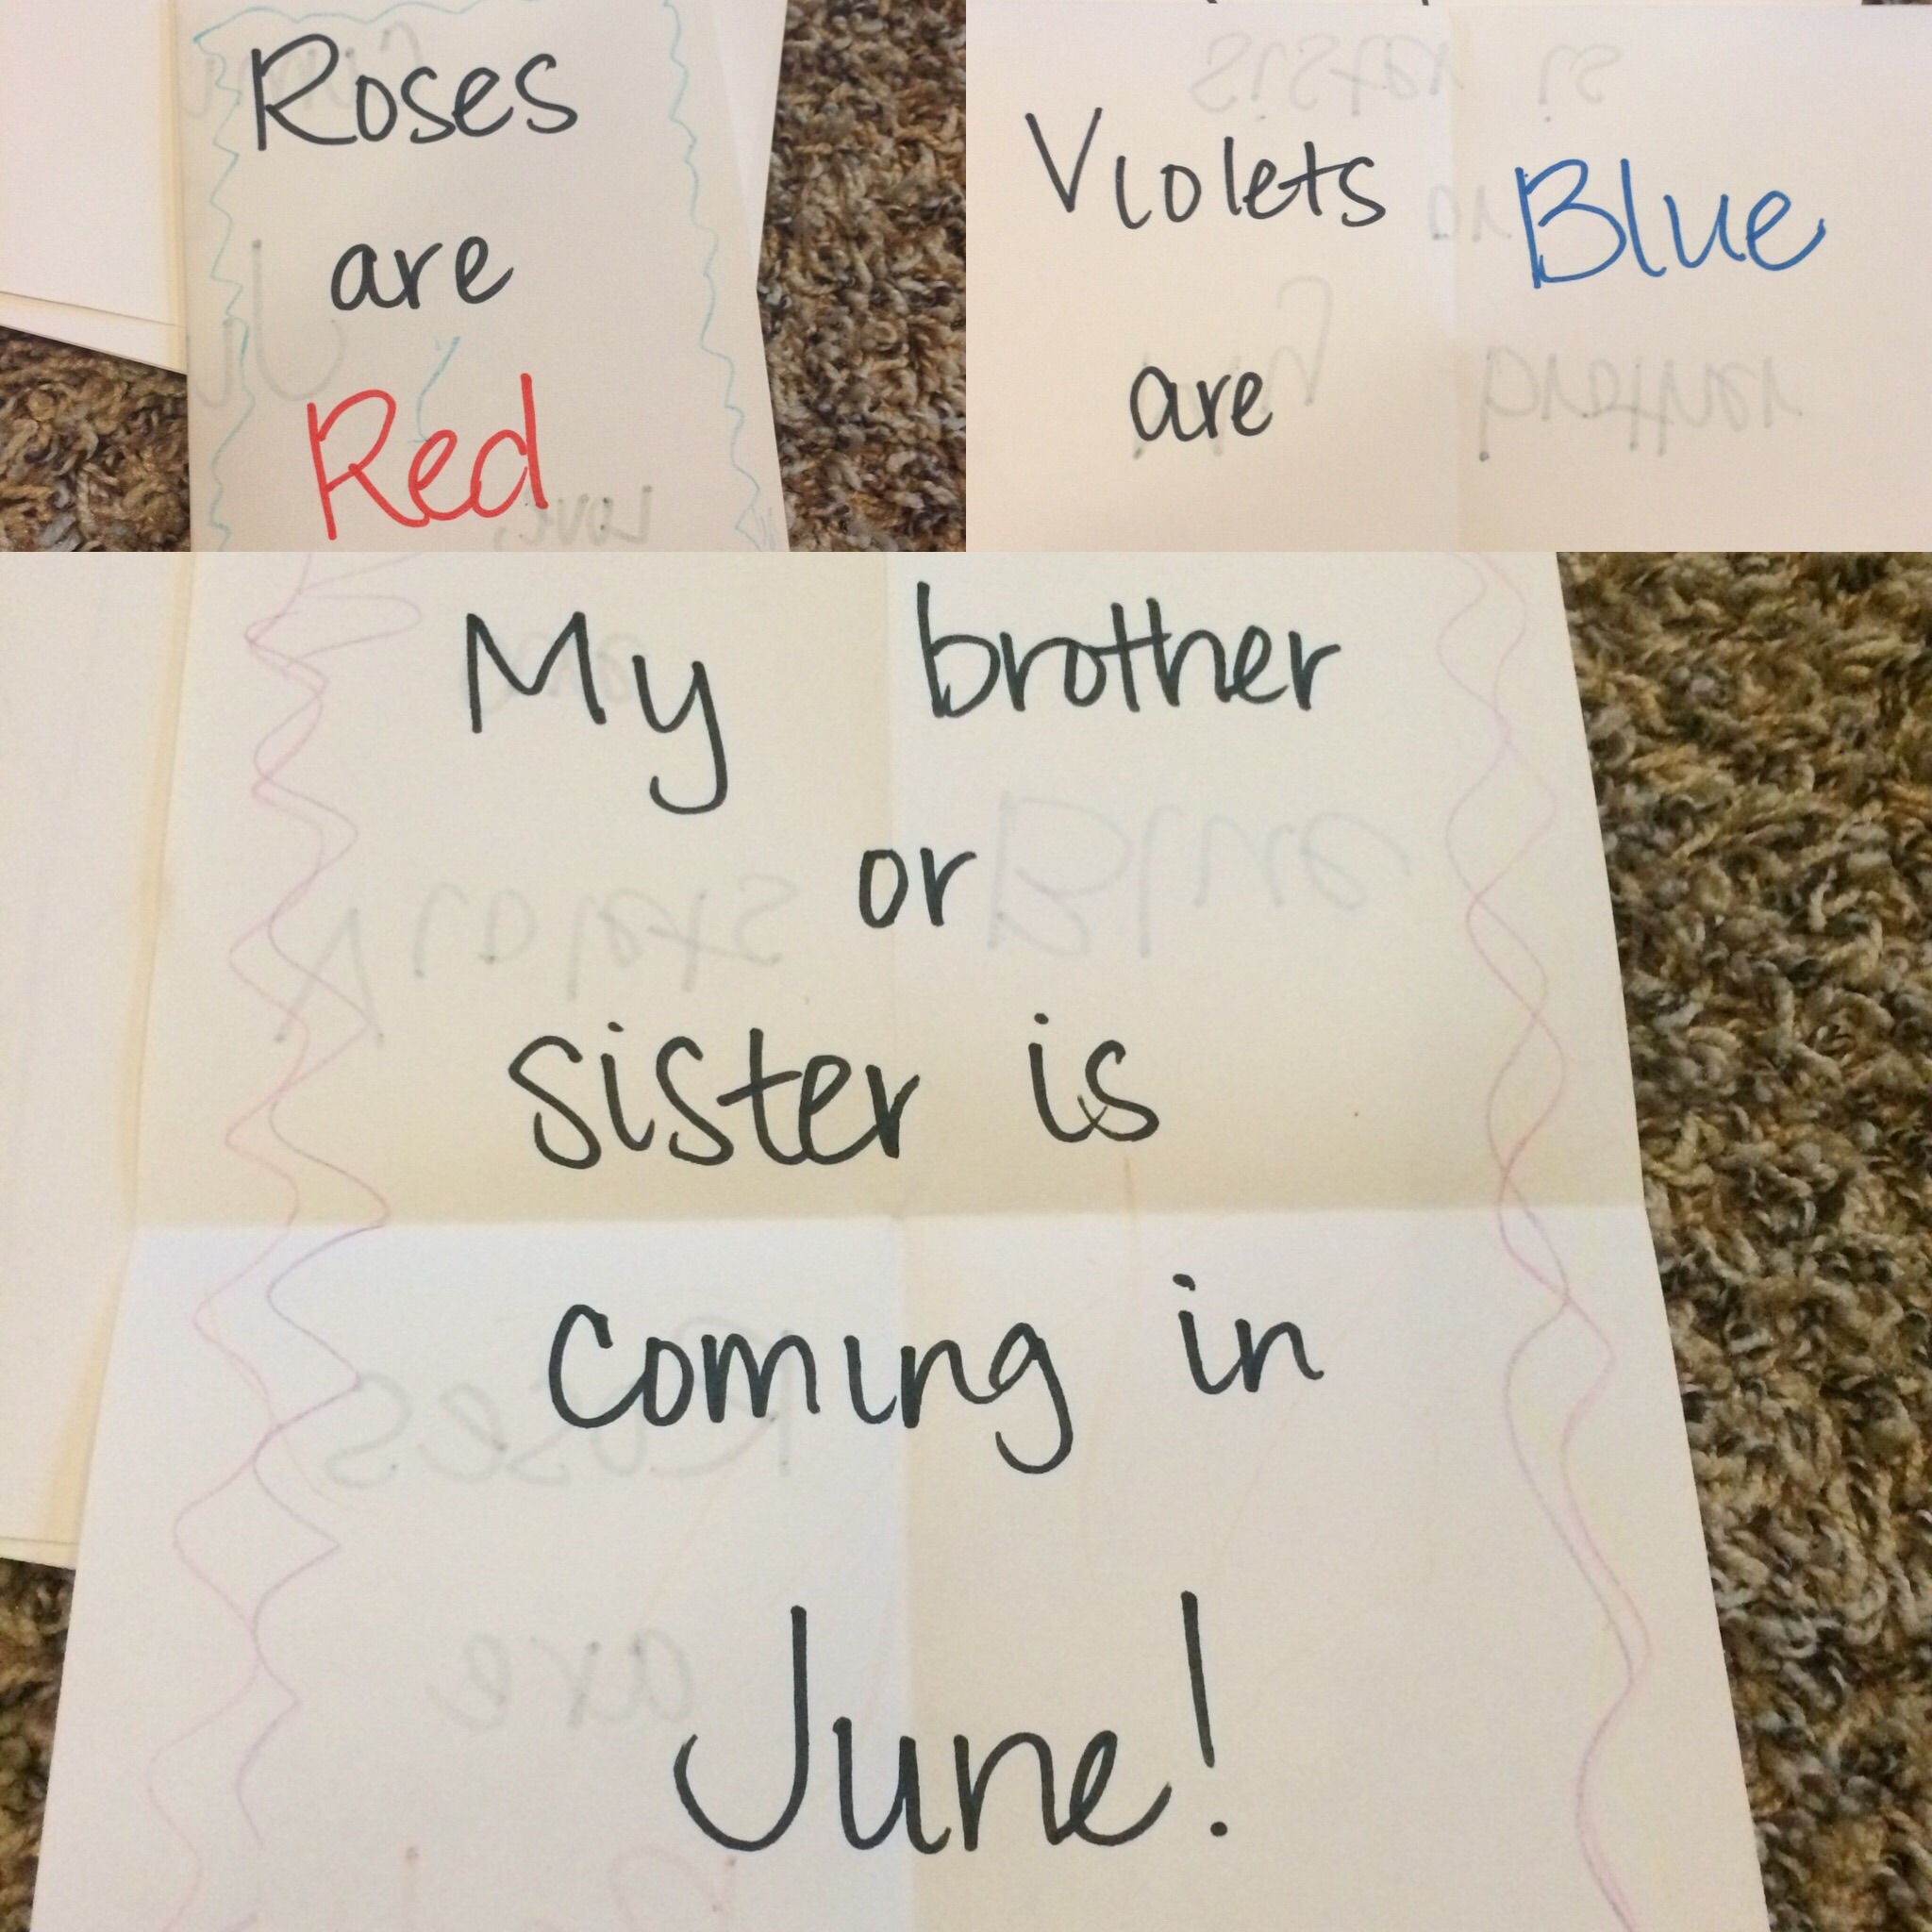 Roses
are
Red
Violets Blue
are
My brother
or
sister is
Coming in
June!